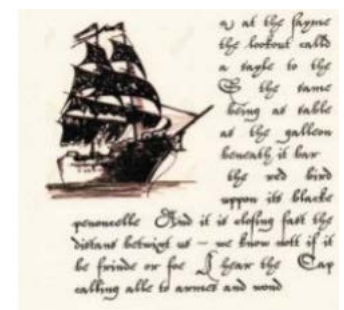 at the sayme
the lookout calls
a sayle to the
S the same
being at table
as the galleon
beneath it bar
the red bird
uppon its blacke
penoncelle And it is closing fast the
distans betwixt us – we know nott if it
be frinde or foe I hear the Cap
calling alle to armes and wond